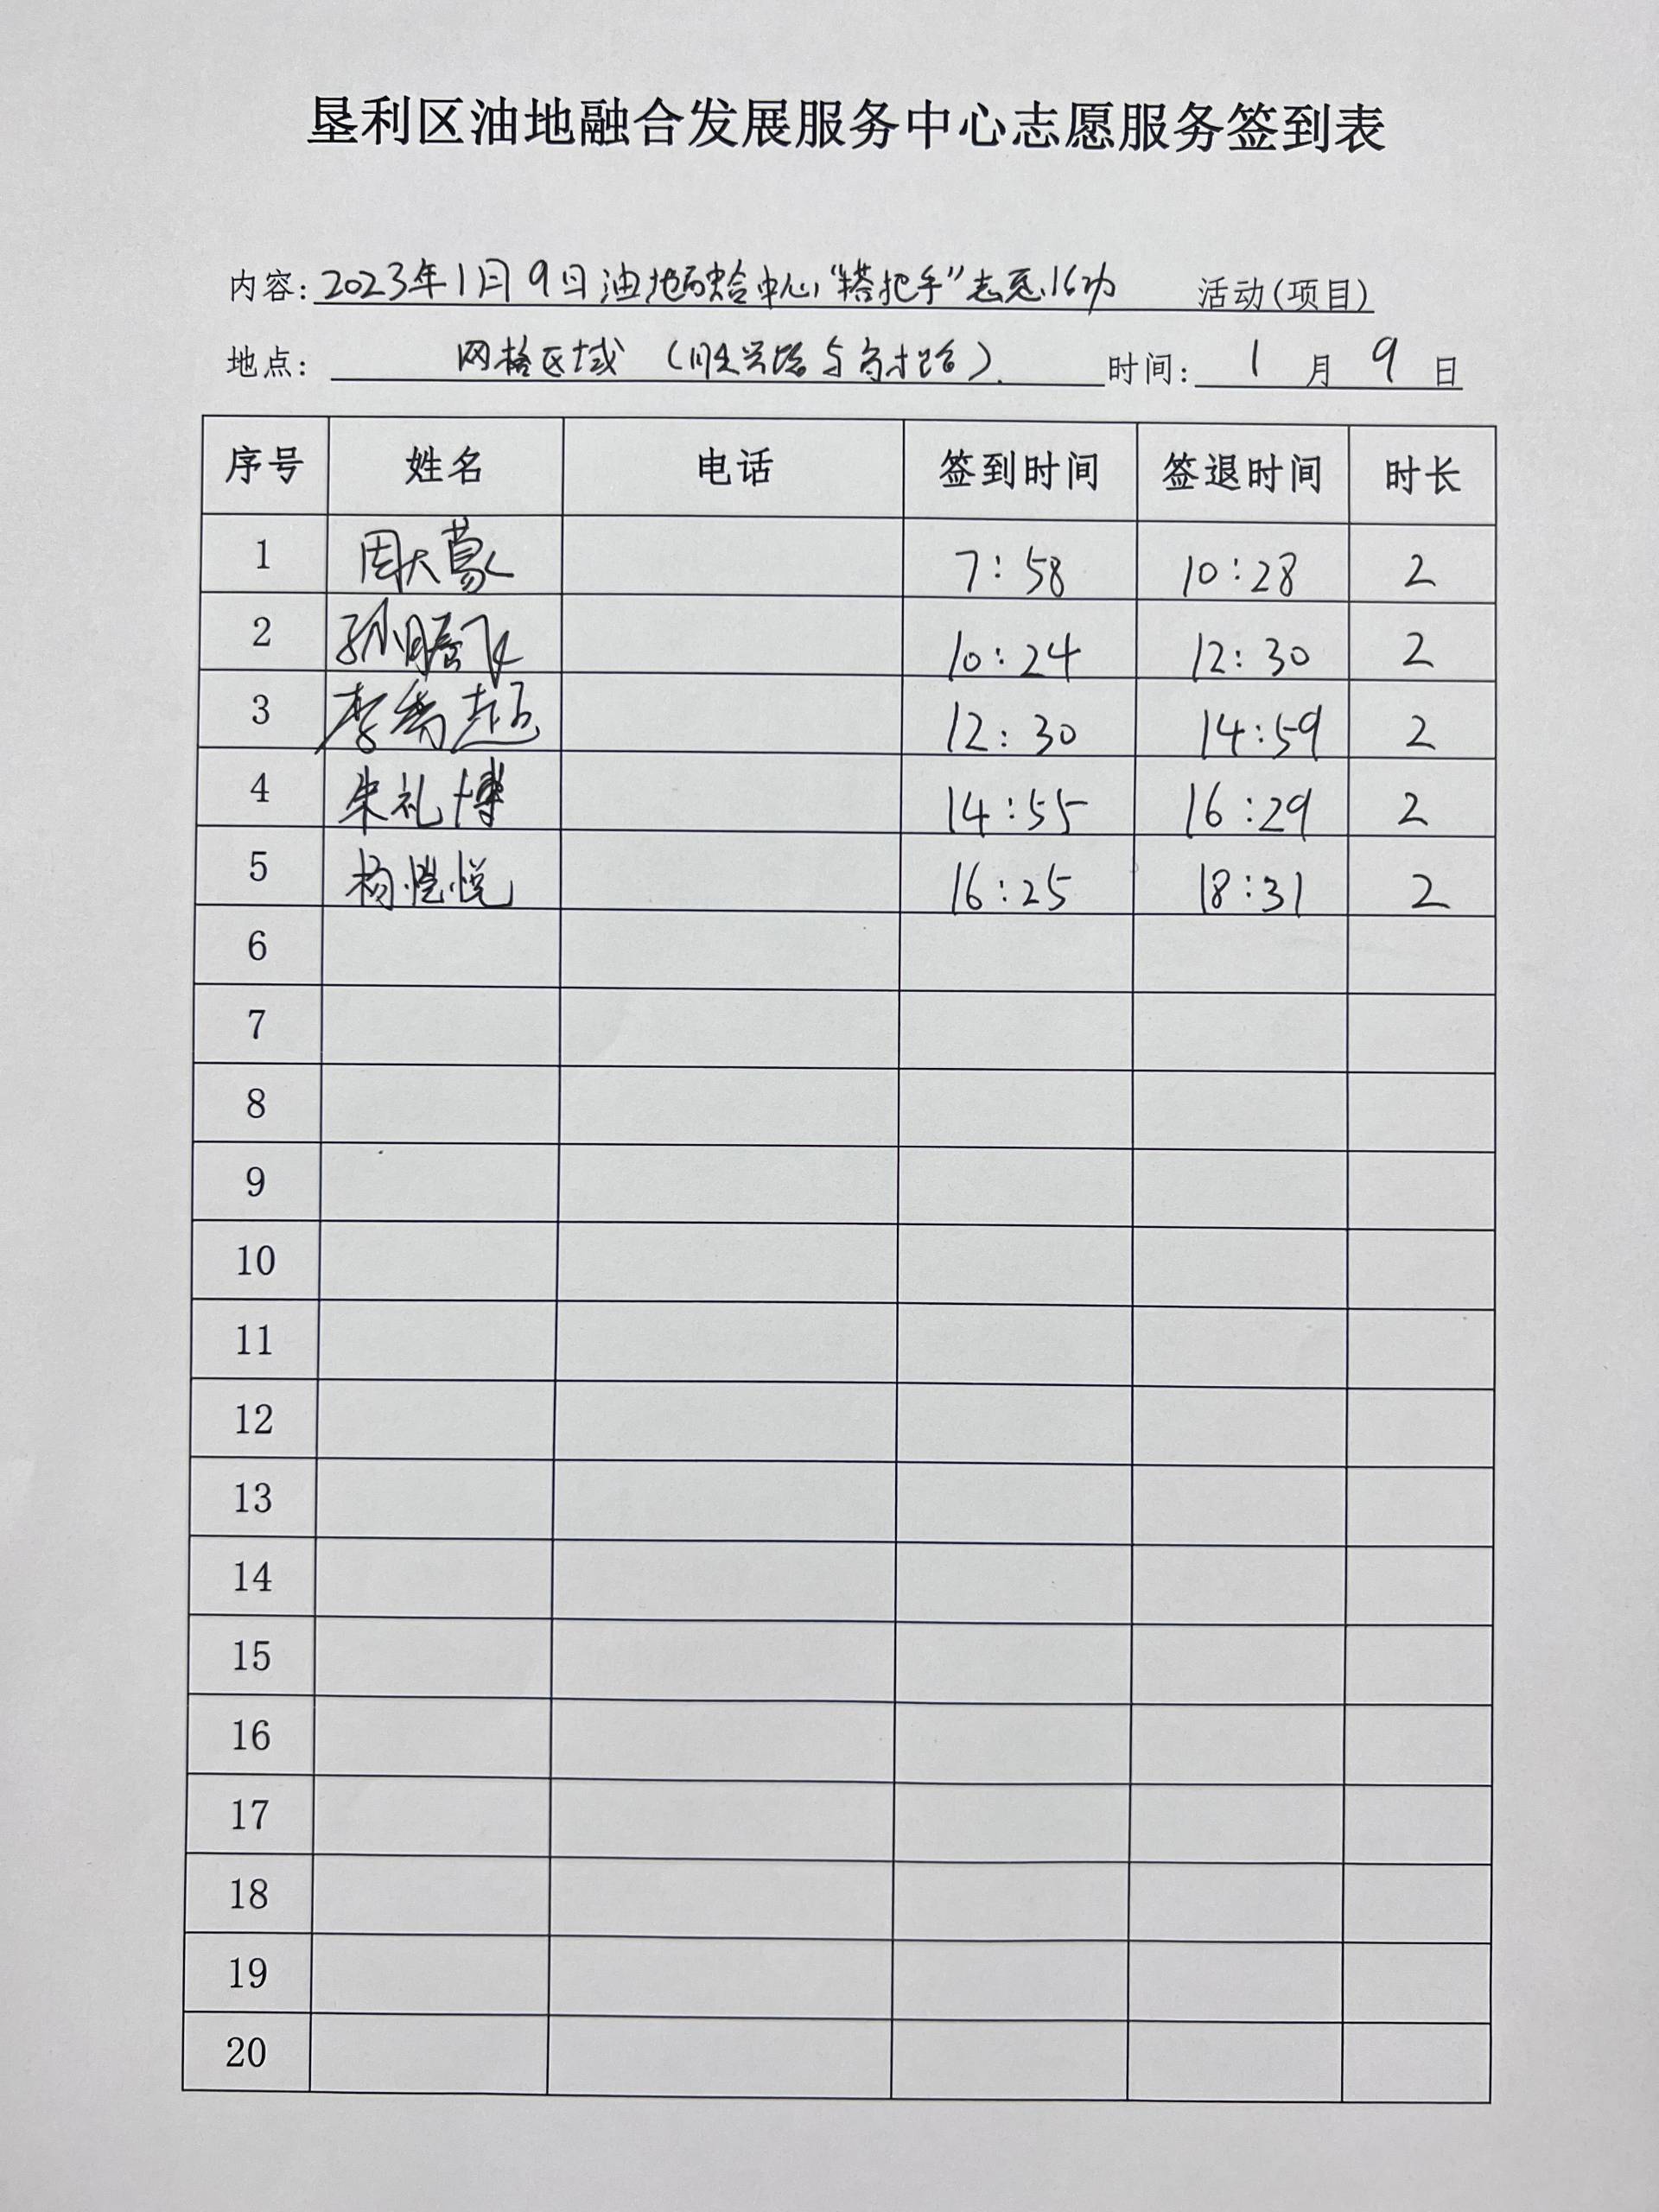 垦利区油地融合发展服务中心志愿服务签到表
内容: 2023年1月9日油地融合中心"搭把手"志愿活动 活动(项目)
地点: 网格区域（胜兴路与 路） 时间: 1 月 9 日
序号 姓名 电话 签到时间 签退时间 时长
1 周大蒙 7:58 10:28 2
2 孙腾飞 10:24 12:30 2
3 李 超 12:30 14:59 2
4 朱礼博 14:55 16:29 2
5 杨恺悦 16:25 18:31 2
6
7
8
9
10
11
12
13
14
15
16
17
18
19
20